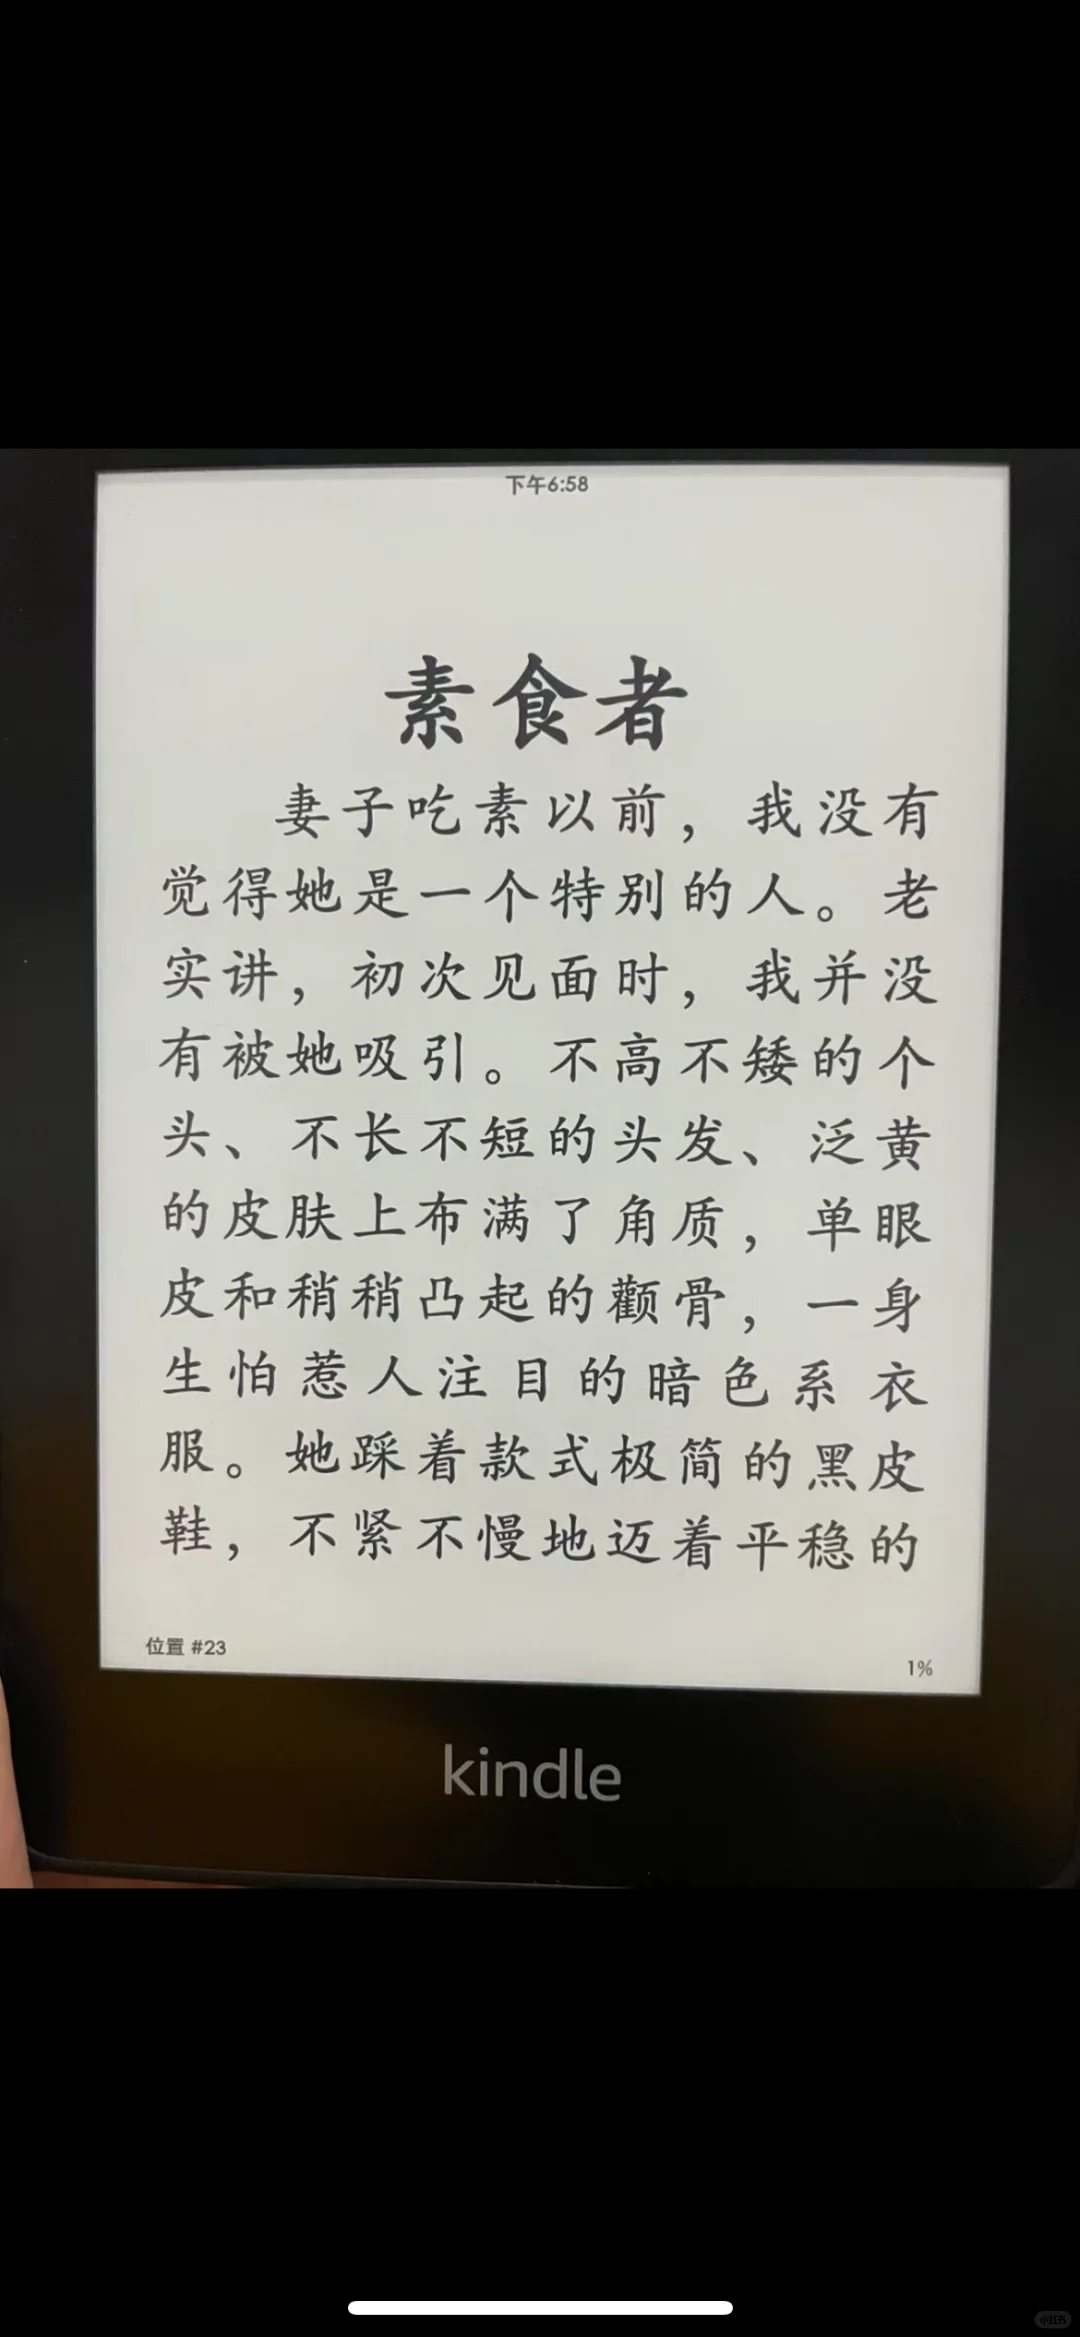 下午6:58
素食者
妻子吃素以前，我没有
觉得她是一个特别的人。老
实讲，初次见面时，我并没
有被她吸引。不高不矮的个
头、不长不短的头发、泛黄
的皮肤上布满了角质，单眼
皮和稍稍凸起的颧骨，一身
生怕惹人注目的暗色系衣
服。她踩着款式极简的黑皮
鞋，不紧不慢地迈着平稳的
位置 #23
1%
kindle